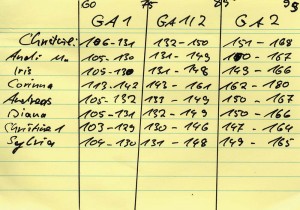 60 75 85 95
GA1 GA1/2 GA2
106-131 132-150 151-168
Andi M. 105-130 131-149 150-167
Iris 105-130 131-148 149-166
Corinna 113-142 143-161 162-180
Andreas 105-132 133-149 150-167
Diana 105-131 132-149 150-166
Christine 1 103-129 130-146 147-164
Sylvia 104-130 131-148 149-165